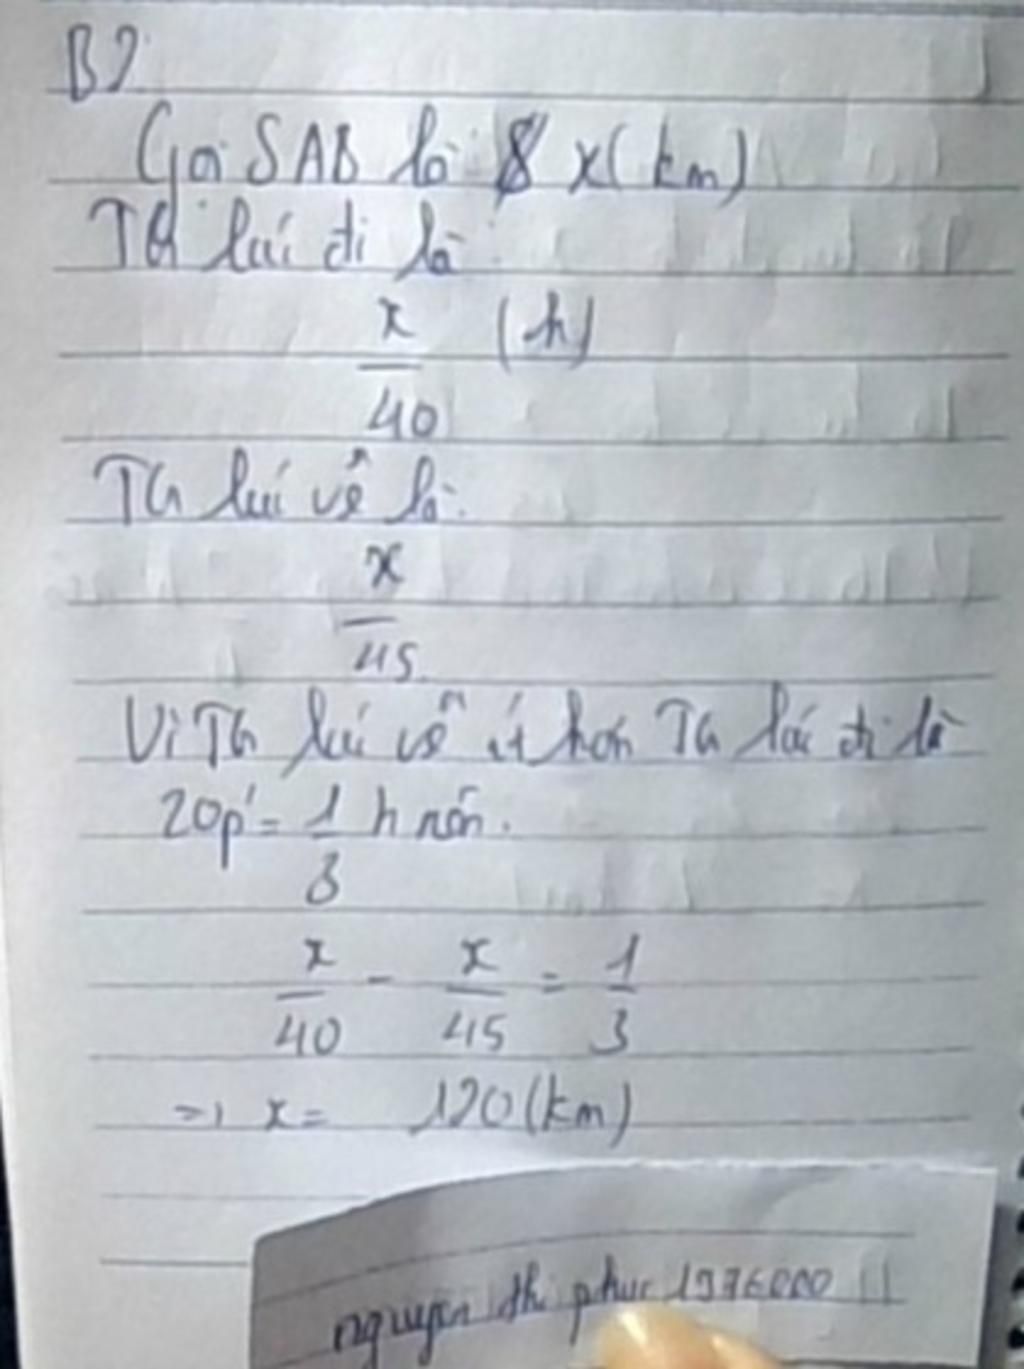 B2
Gọi SAB là x (km)
TG lúc đi là
x (h)
40
TG lúc về là:
x
45
Vì TG lúc về ít hơn TG lúc đi là
20p' = 1 h nên.
3
x - x = 1
40 45 3
=> x = 120 (km)
nguyen thi phuc 1976000